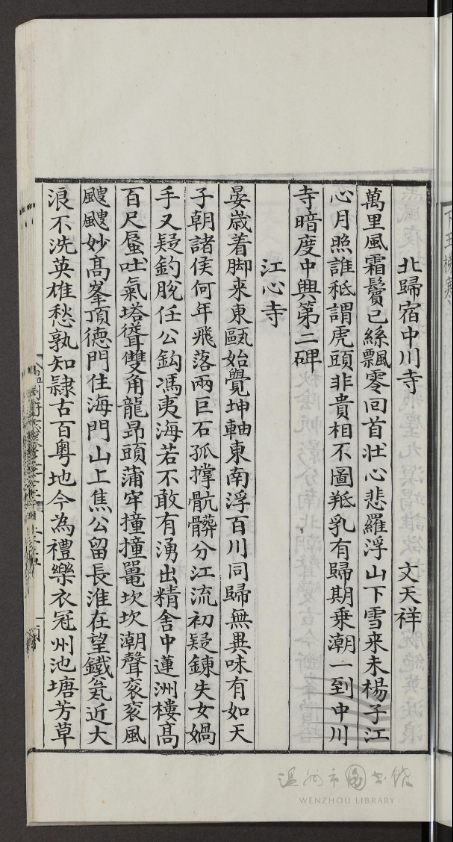 北歸宿中川寺　文天祥
萬里風霜鬢已絲飄零回首壯心悲羅浮山下雪來未楊子江
心月照誰秪謂虎頭非貴相不圖羝乳有歸期乗潮一到中川
寺暗度中興第二碑
江心寺
晏歳着脚來東甌始覺坤軸東南浮百川同歸無異味有如天
子朝諸侯何年飛落兩巨石孤撑骯髒分江流初疑鍊失女媧
手又疑釣脫任公鈎馮夷海若不敢有湧出精舍中蓮洲樓髙
百尺蜃吐氣塔聳雙角龍昻頭蒲牢撞撞鼉坎坎潮聲衮衮風
颼颼妙髙峯頂德門住海門山上焦公留長淮在望鐵瓮近大
浪不洗英雄愁孰知隷古百粤地今為禮樂衣冠州池塘芳草
温州市圖書館
WENZHOU LIBRARY